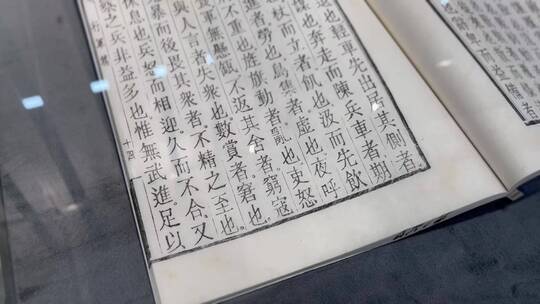 也輕車先出居其側者
謀也奔走而陳兵車者期
杖而立者飢也汲而先飲
者勞也鳥集者虛也夜呼
不重也旌旗動者亂也吏怒
軍無懸缻不返其舍者窮寇
與人言者失衆也數賞者窘也
暴而後畏其衆者不精之至也
休息也兵怒而相迎久而不合又
察之兵非益多也惟無武進足以
十四